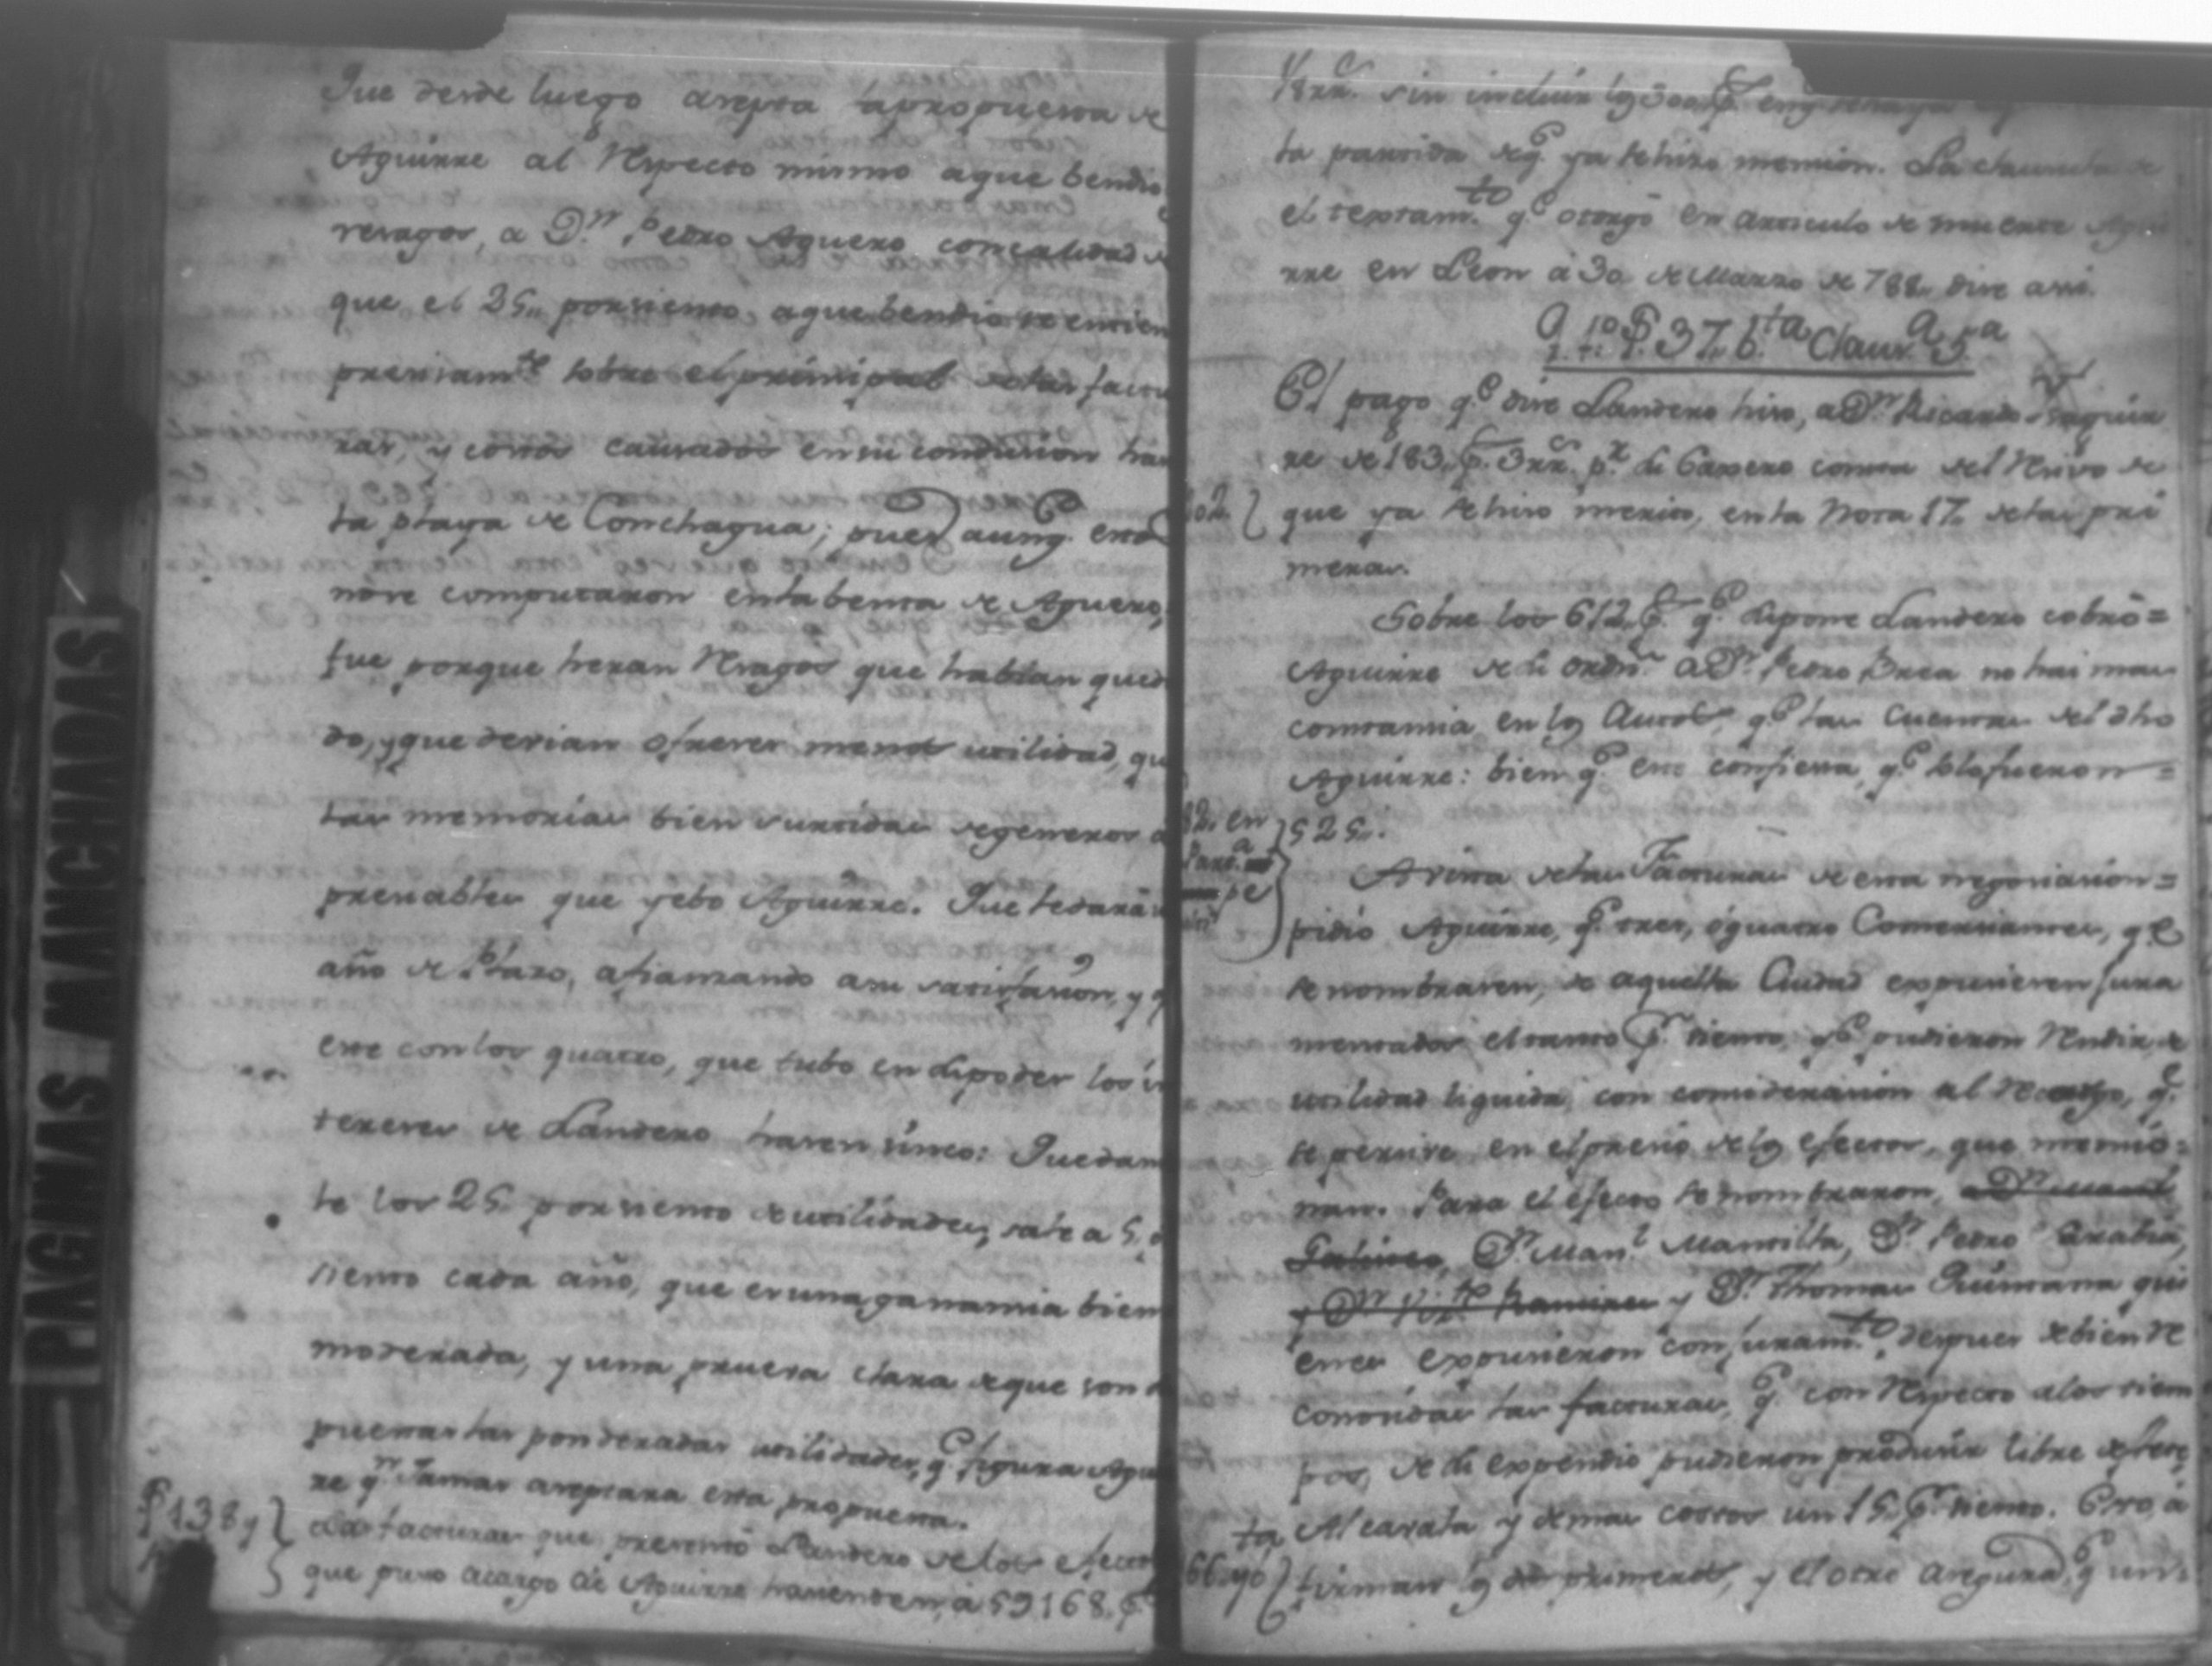 Que desde luego acepta la propuesta de
Aguirre al respecto mismo a que bendio
resagos, a Dn. Pedro Aguero con calidad
que el 25,, por siento, a que bendio se entien
presisamte. sobre el prinsipal de las factu
ras, y costos causados en su condusion has
ta playa de Conchagua; pues aunqe. esto
no se computaron en la benta de Aguero,
fue porque heran resagos que habian queda
do, y que devian ofrecer menos utilidad, qu
las memorias bien surtidas de generos a
presiables que yebo Aguirre. Que le dará
año de Plazo, afianzando a su satisfasion, y q
este con los quatro, que tubo en su poder los in
tereses de Landero hasen sinco: Quedan
le los 25. por siento de utilidades, sale a 5.
siento cada año, que es una ganansia bien
moderada, y una prueva clara de que son
puestas las ponderadas utilidades, qe. figura Agui
re qn. Jamas aceptara esta propuesta.
Las facturas que presentó Landero de los efectos
que puso a cargo de Aguirre hasienden, a 59168. ps.
PAGINAS MANCHADAS
sin incluir los 300 ps.
ta partida de qe. ya se hizo mension. La clausula de
el testamto. qe. otorgó en articulo de muerte Agui
rre en Leon á 30 de Marzo de 788. dice asi.
37. 6.ta Claus.a 5.a
El pago qe. dice Landero hiso, a Dn. Ricardo Ysaguir
re de 183. ps. 3 rrs. pr. su Casero consta del resivo de
que ya se hiso merito, en la Nota 17. de las pri
meras.
Sobre los 612. ps. qe. supone Landero cobró=
Aguirre de su ordn. a Dn. Pedro Brea no hai mas
constansia en los Autos, qe. las Cuentas del dho
Aguirre: bien qe. este confiesa, qe. solo fueron=
525,,.
A vista de las Facturas de esta negosiasion=
pidió Aguirre, qe. tres, ó quatro Comersiantes, qe.
se nombrasen, de aquella Ciudad expusiesen jura
mentados el tanto pr. siento, qe. pudieron rendir, de
utilidad liquida, con consideracion al recargo, qe.
se persive en el presio de los efectos, que mensio=
nan. Para el efecto se nombraron,
Dn. Manl. Mansilla, Dn. Pedro Arabia,
y Dn. Thomas Quintana qui
enes expusieron con juramto. despues de bien re
conosidas las facturas, qe. con respecto a los tiem
pos, de su expendio pudieron produsir libre de flete
Alcavala y demas costos un 15. pr. siento. Esto, á
firman los dos primeros, y el otro asegura, qe. un=